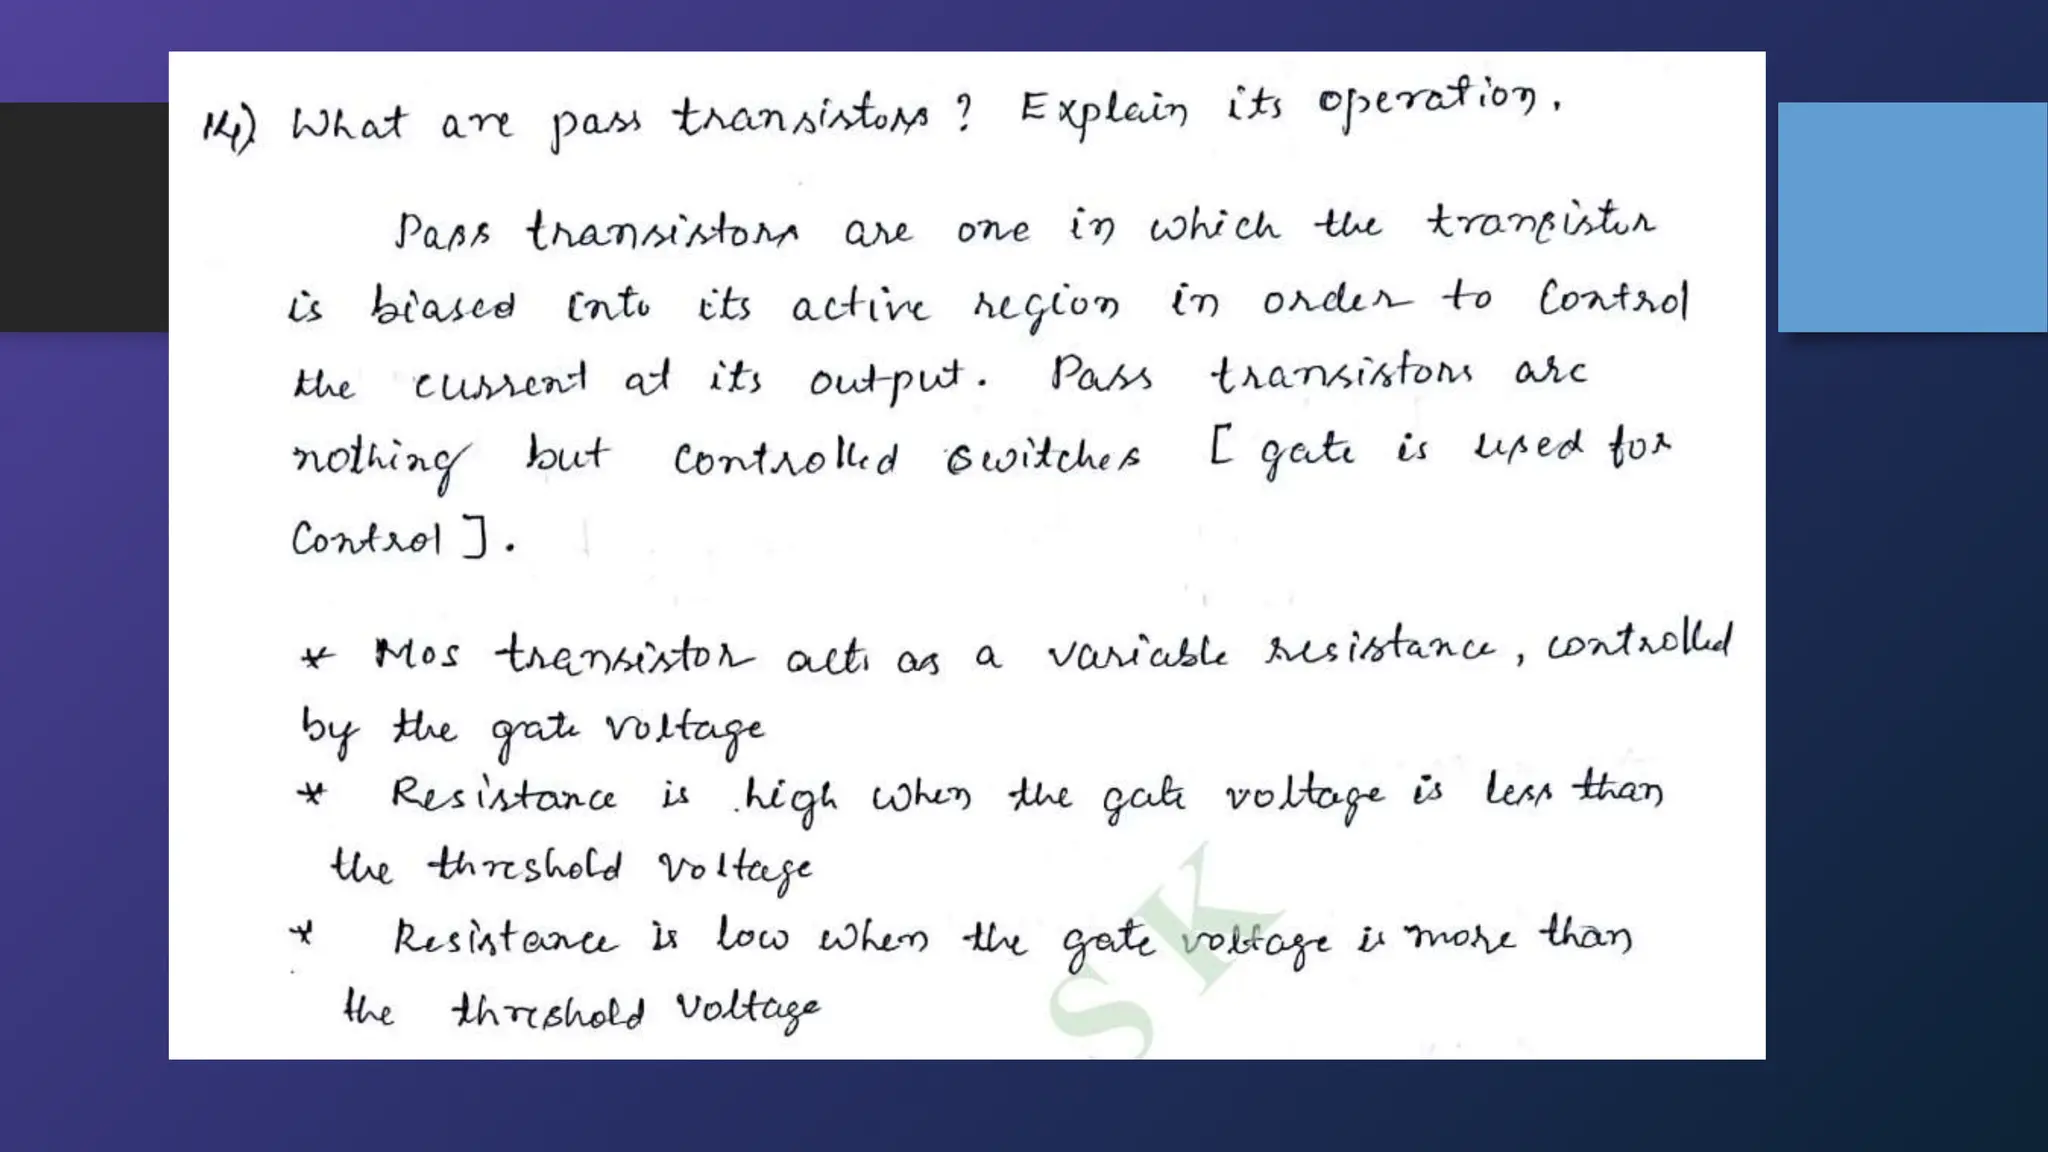 14) What are pass transistors? Explain its operation.
Pass transistors are one in which the transistor
is biased into its active region in order to Control
the current at its output. Pass transistors are
nothing but controlled switches [ gate is used for
Control ].
* Mos transistor acts as a variable resistance, controlled
by the gate voltage
* Resistance is high when the gate voltage is less than
the threshold voltage
* Resistance is low when the gate voltage is more than
the threshold voltage
SK